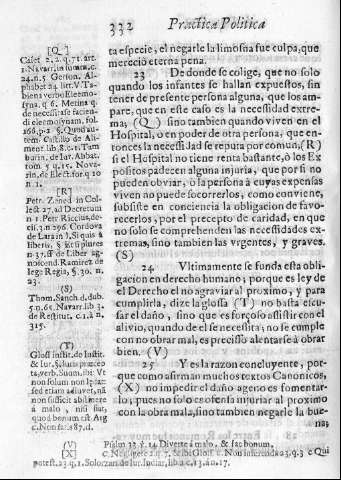 332 Practica Politica
ta especie, el negarle la limosna fue culpa, que
mereciesse eterna pena.
23 De donde se colige, que no solo
quando los infantes se hallan expuestos, sin
tener de presente persona alguna, que los am-
pare, que en este caso es la necessidad extre-
ma, (Q) sino tambien quando viven en el
Hospital, o en poder de otra persona, que en-
tonces la necessidad se reputa por comun, (R)
si el Hospital no tiene renta bastante, ò los Ex
positos padecen alguna injuria, que por si no
pueden obviar, ò la persona à cuyas expensas
viven no puede socorrerlos, como conviene,
subsiste en conciencia la obligacion de favo-
recerlos, por el precepto de caridad, en que
no solo se comprehenden las necessidades ex-
tremas, sino tambien las vrgentes, y graves.
(S)
24 Vltimamente se funda esta obli-
gacion en derecho humano; porque es ley de
el Derecho el no agraviar al proximo, y para
cumplirla, dize la glossa (T) no basta escu-
sar el daño, sino que es forçoso assistir con el
alivio, quando de el se necessita; no se cumple
con no obrar mal, es precisso alentarse à obrar
bien. (V)
25 Y es la razon concluyente, por-
que como afirman muchos textos Canonicos,
(X) no impedir el daño ageno es fomentar-
lo, pues no solo es ofensa injuriar al proximo
con la obra mala, sino tambien negarle la bue
na;
[Q]
Caiet. 2. 2. q. 71. art.
1. Navarr. in summ. c.
24. n. 5. Gerson. Al-
phabet 24. litt. V. Ta-
biena verbo Eleemo-
syna. q. 6. Medina q.
de necessitate facien-
di eleemosynam. fol.
166. p. 2 §. Quod au-
tem. Castillo de Ali-
ment. lib. 8. c. 1. Tam
burin. de Iur. Abbat.
tom. 3 q. 15. Nova-
rin. de Elect. for. q. 20
n. 1.
[R]
Petr. Zened. in Col-
lect 27. ad Decretum
n 1. Petr. Riccius, de-
cis. 3. n 296. Cordova
de Lara in l. Si quis à
liberis. §. si vel plures
n 37. ff de Liber ag-
noscend. Ramirez de
lege Regia, §. 30. n.
23.
(S)
Thom. Sanch. d. dub.
5. n. 65. Navarr lib 3.
de Restitut. c. 1. à n.
315.
(T)
Gloss. Instit. de Iustit.
& Iur. §. Iuris præcep-
ta, verb. suum, ibi: Vt
non solum non lædas
sed etiam adiuves, nã
non sufficit abstinere
à malo, nisi fiat,
quod bonum est. Arg
C. Non satis 87. d.
(V) Psalm 33. ℣. 14. Diverte à malo, & fac bonum.
(X) C. Negligere 2. q. 7. & ibi Gloss. C. Non inferenda 23. q. 3. c Qui
potest. 23. q. 1. Solorzan de Iur. Indiar. lib 2. c. 13. à n. 17.